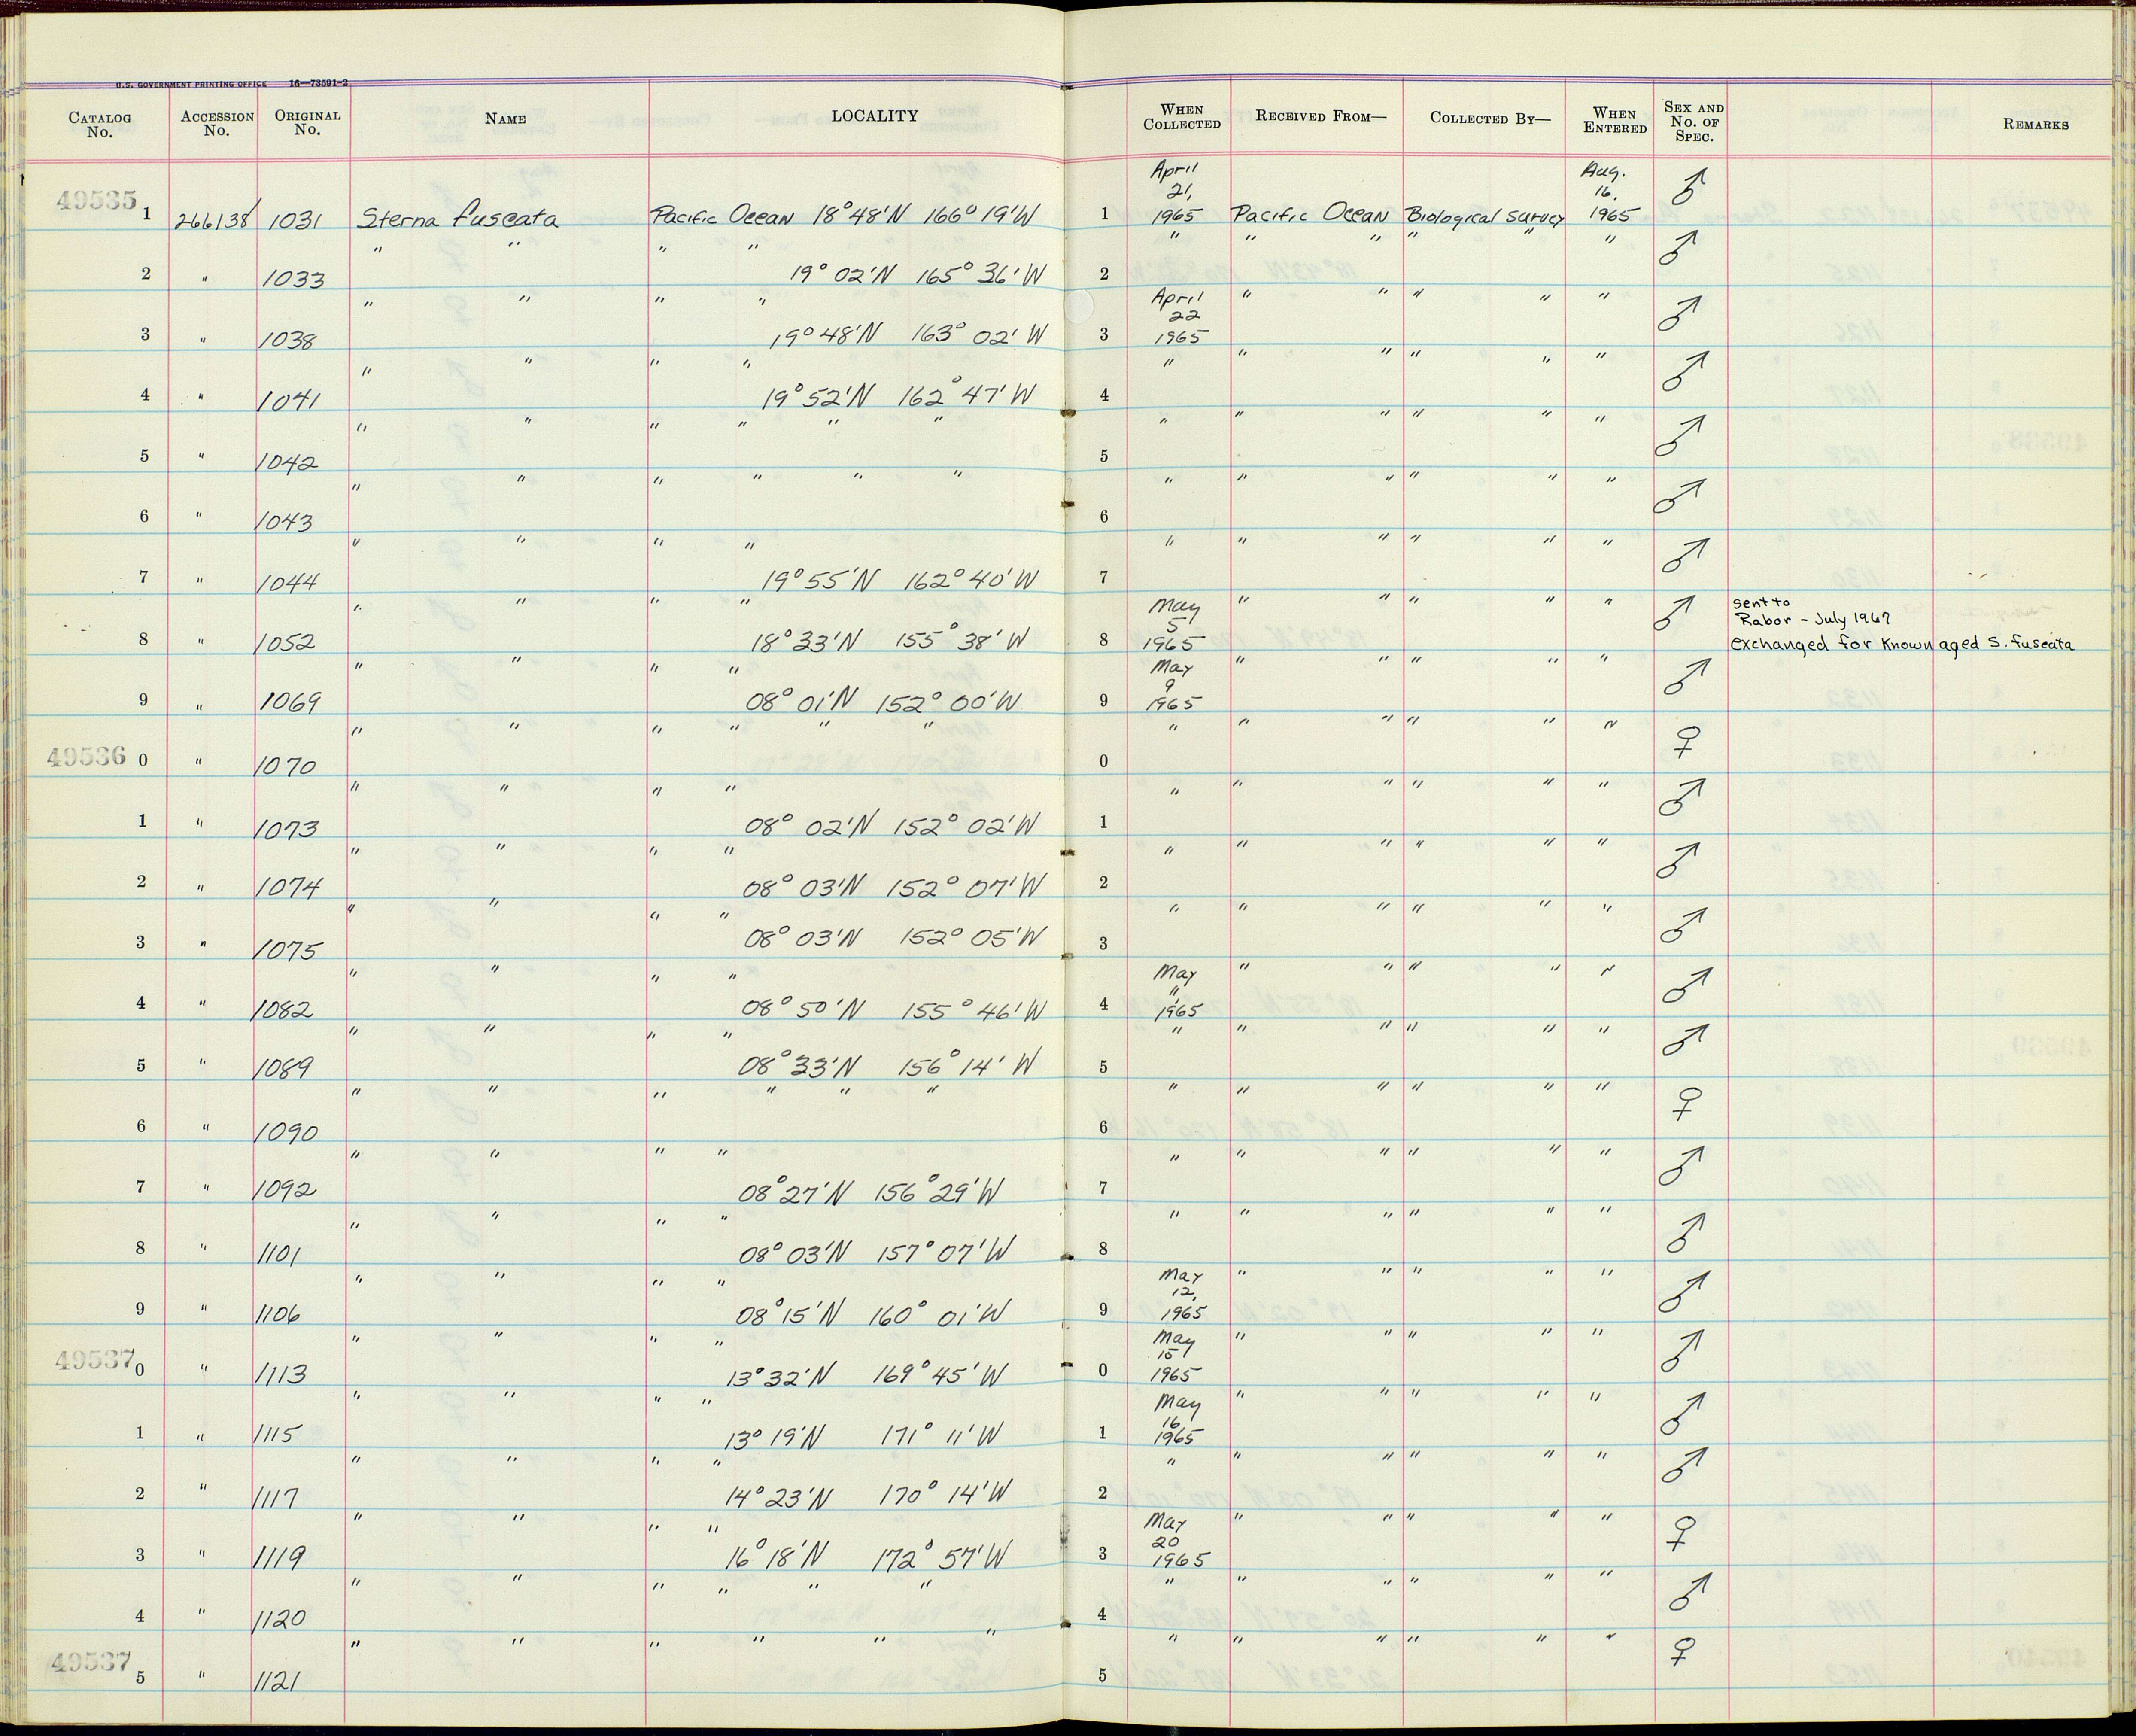 U.S. GOVERNMENT PRINTING OFFICE 16—73591-2
CATALOG No. ACCESSION No. ORIGINAL No. NAME LOCALITY WHEN COLLECTED RECEIVED FROM— COLLECTED BY— WHEN ENTERED SEX AND No. OF SPEC. REMARKS
49535 1 266138 1031 Sterna fuscata Pacific Ocean 18°48'N 166° 19'W 1 April 21, 1965 Pacific Ocean Biological Survey Aug. 16, 1965 ♂
2 " 1033 " " " " 19° 02'N 165° 36'W 2 " " " " " " ♂
3 " 1038 " " " " 19° 48'N 163° 02' W 3 April 22 1965 " " " " " ♂
4 " 1041 " " " " 19° 52'N 162° 47' W 4 " " " " " " ♂
5 " 1042 " " " " " " 5 " " " " " " ♂
6 " 1043 " " " " " " 6 " " " " " " ♂
7 " 1044 " " " " 19° 55'N 162° 40'W 7 " " " " " " ♂
8 " 1052 " " " " 18° 33'N 155° 38' W 8 May 5 1965 " " " " " ♂ sent to Rabor - July 1967 exchanged for known aged S. fuscata
9 " 1069 " " " " 08° 01'N 152° 00'W 9 May 9 1965 " " " " " ♂
49536 0 " 1070 " " " " " " 0 " " " " " " ♀
1 " 1073 " " " " 08° 02'N 152° 02'W 1 " " " " " " ♂
2 " 1074 " " " " 08° 03'N 152° 07'W 2 " " " " " " ♂
3 " 1075 " " " " 08° 03'N 152° 05'W 3 " " " " " " ♂
4 " 1082 " " " " 08° 50'N 155° 46'W 4 May 1965 " " " " " ♂
5 " 1089 " " " " 08° 33'N 156° 14' W 5 " " " " " " ♂
6 " 1090 " " " " " " 6 " " " " " " ♀
7 " 1092 " " " " 08° 27'N 156° 29'W 7 " " " " " " ♂
8 " 1101 " " " " 08° 03'N 157° 07'W 8 " " " " " " ♂
9 " 1106 " " " " 08° 15'N 160° 01'W 9 May 12, 1965 " " " " " ♂
49537 0 " 1113 " " " " 13° 32'N 169° 45'W 0 May 15 1965 " " " " " ♂
1 " 1115 " " " " 13° 19'N 171° 11'W 1 May 16, 1965 " " " " " ♂
2 " 1117 " " " " 14° 23'N 170° 14'W 2 " " " " " " ♂
3 " 1119 " " " " 16° 18'N 172° 57'W 3 May 20 1965 " " " " " ♀
4 " 1120 " " " " " " 4 " " " " " " ♂
49537 5 " 1121 " " " " " " 5 " " " " " " ♀